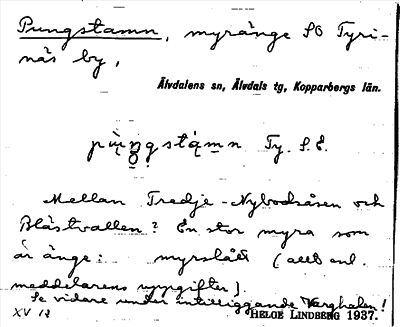 Pungstamn, myränge SO Tyri-
näs by,
Älvdalens sn, Älvdals tg, Kopparbergs län.
pùŋgstàmn Ty. S.E.
Mellan Tredje-Nybodsåsen och
Blästvallen? En stor myra som
är änge: myrslått (allt enl.
meddelarens uppgifter).
Se vidare under intilliggande Varghalen!
XV 12 HELGE LINDBERG 1937.